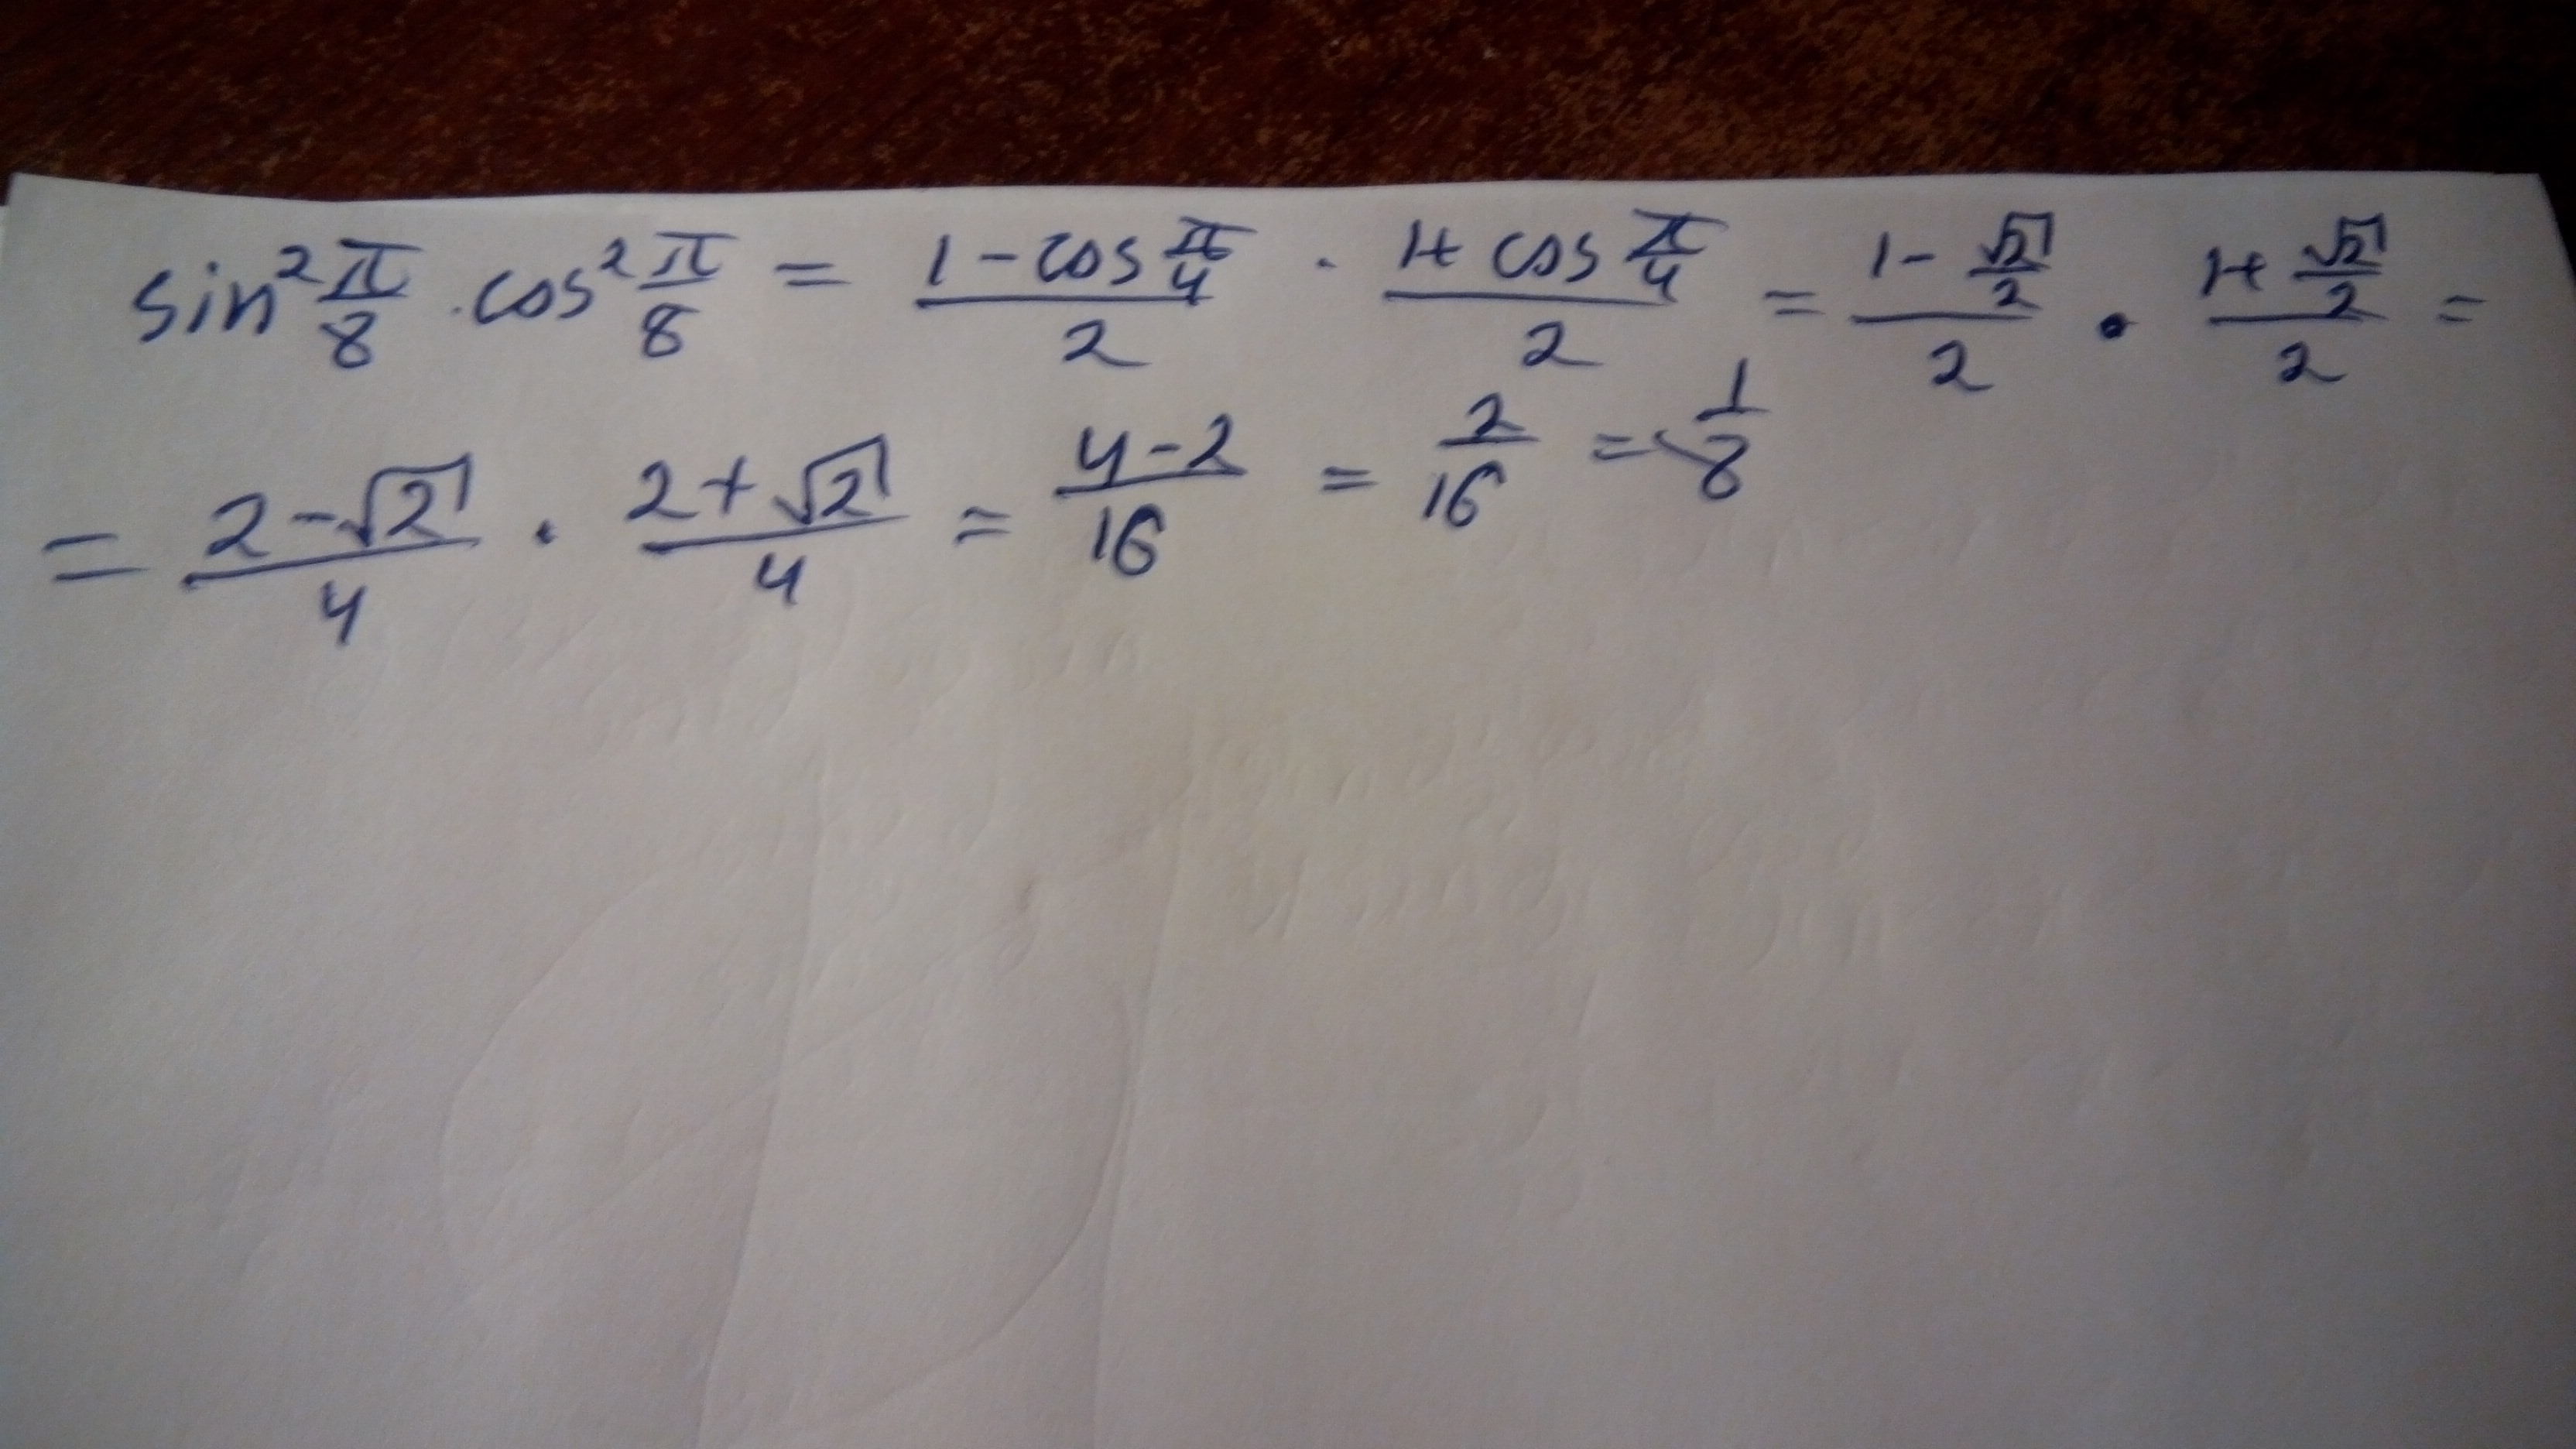 sin² π/8 · cos² π/8 = (1 - cos π/4)/2 · (1 + cos π/4)/2 = (1 - √2/2)/2 · (1 + √2/2)/2 =
= (2 - √2)/4 · (2 + √2)/4 = (4 - 2)/16 = 2/16 = 1/8